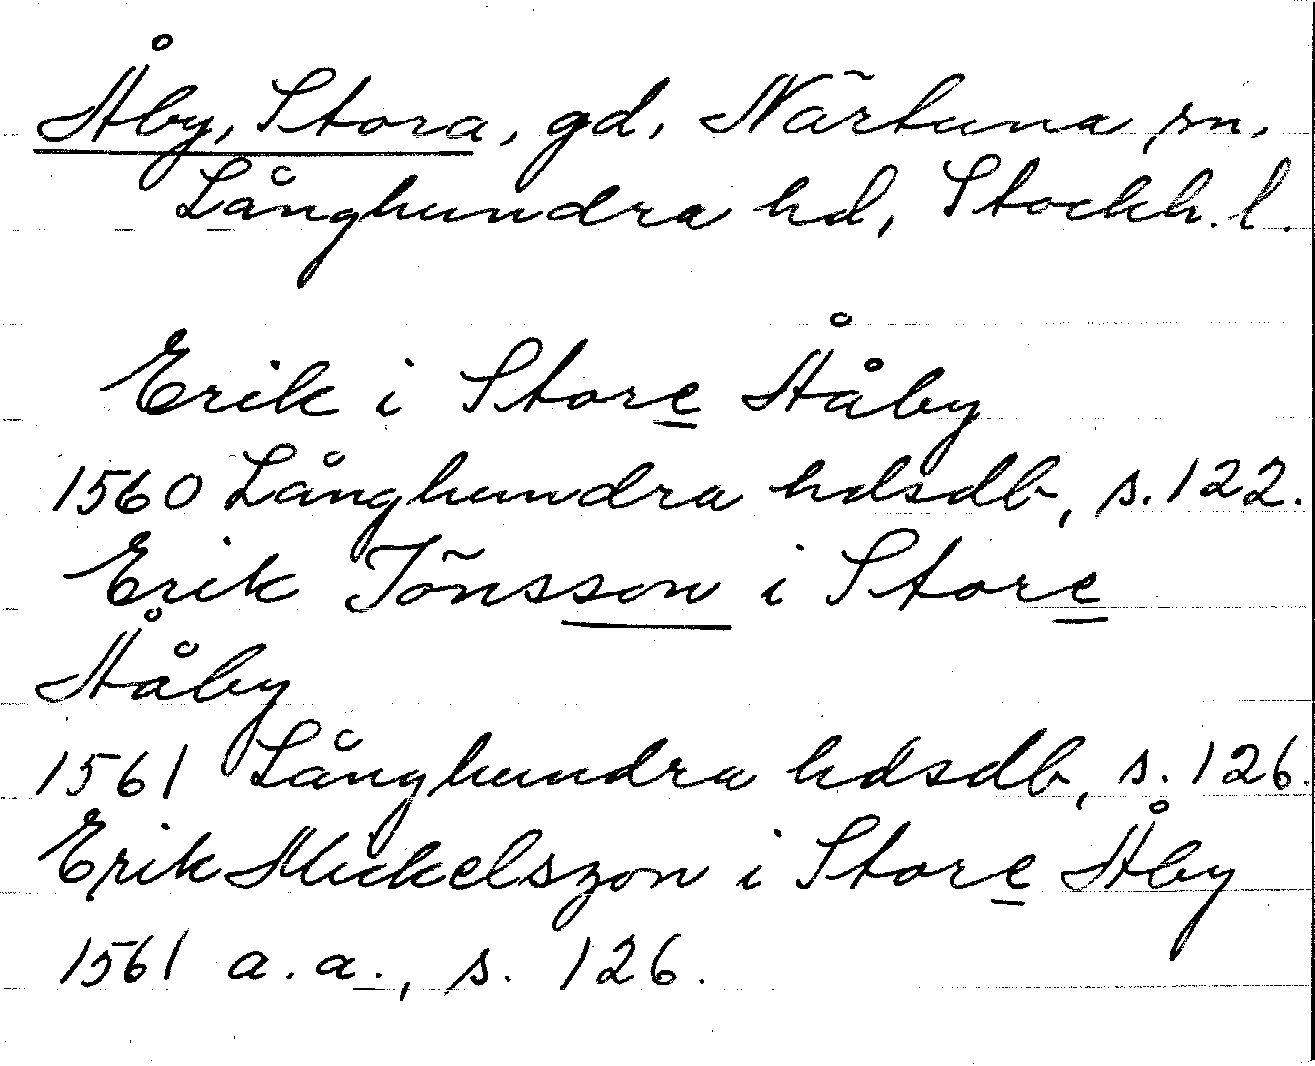 Åby, Stora, gd, Närtuna sn,
Långhundra hd, Stockh. l.
Erik i Store Ååby
1560 Långhundra hdsdb, s. 122.
Erik Jönsson i Store
Ååby
1561 Långhundra hdsdb, s. 126.
Erik Mickelszon i Store Åby
1561 a. a., s. 126.